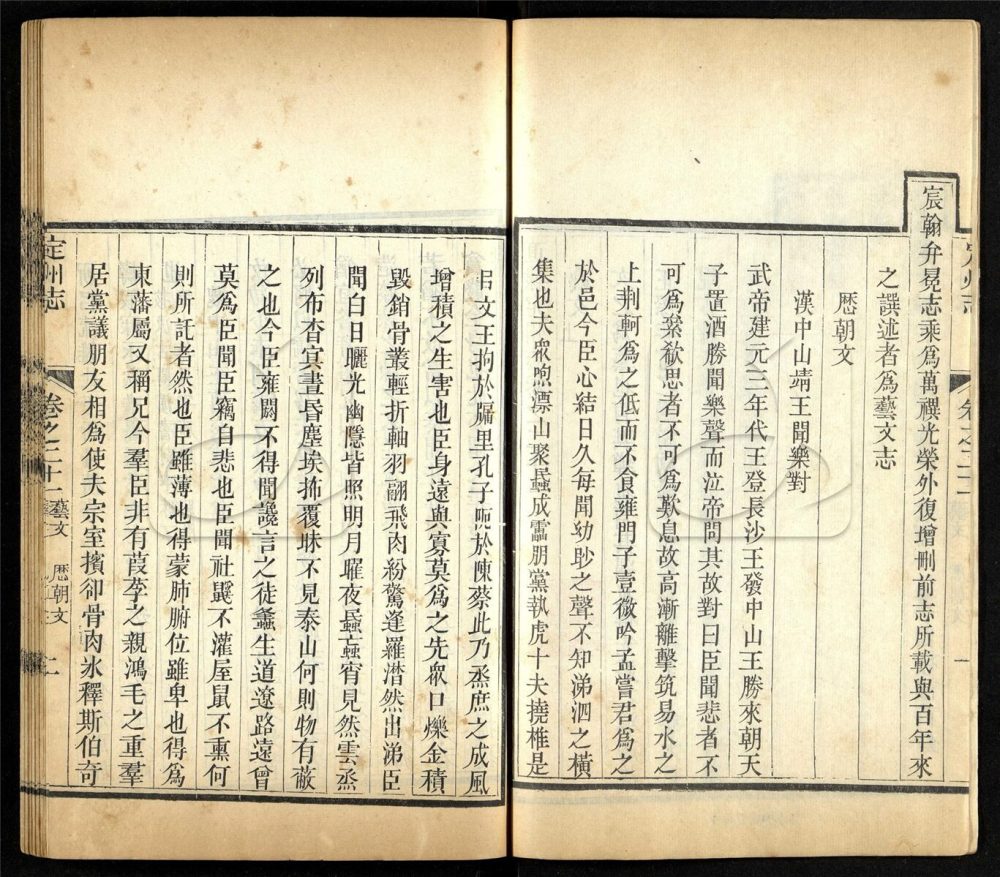 宸翰弁冕志乘爲萬禩光榮外復增刪前志所載與百年來
之譔述者爲藝文志
厯朝文
漢中山靖王聞樂對
武帝建元三年代王登長沙王發中山王勝來朝天
子置酒勝聞樂聲而泣帝問其故對曰臣聞悲者不
可爲絫欷思者不可爲歎息故高漸離擊筑易水之
上荆軻爲之低而不食雍門子壹微吟孟嘗君爲之
於邑今臣心結日久每聞幼眇之聲不知涕泗之橫
集也夫衆喣漂山聚蟁成靁朋黨執虎十夫撓椎是
文王拘於牖里孔子阨於陳蔡此乃烝庶之成風
增積之生害也臣身遠與寡莫爲之先衆口爍金積
毀銷骨叢輕折軸羽翮飛肉紛驚逢羅潸然出涕臣
聞白日曬光幽隱皆照明月曜夜蟁蝱宵見然雲烝
列布杳㝠晝昏塵埃抪覆昧不見泰山何則物有蔽
之也今臣雍閼不得聞讒言之徒蠭生道遼路遠曾
莫爲臣聞臣竊自悲也臣聞社鼷不灌屋鼠不熏何
則所託者然也臣雖薄也得蒙肺腑位雖卑也得爲
東藩屬又稱兄今羣臣非有葭莩之親鴻毛之重羣
居黨議朋友相爲使夫宗室擯卻骨肉冰釋斯伯奇
定州志 卷之二十一 藝文 厯朝文 二